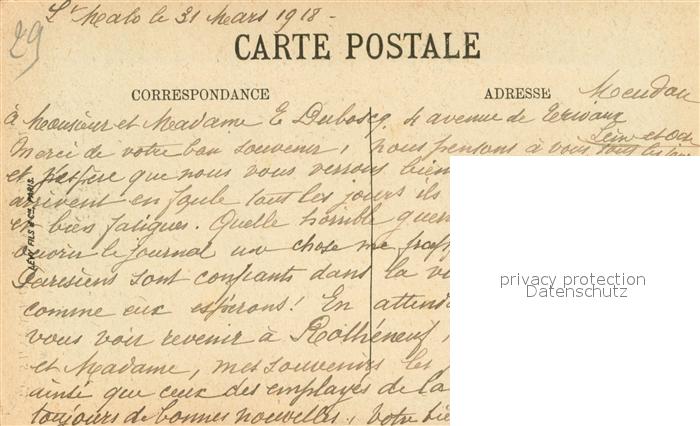 29
St Malo le 31 Mars 1918 -
CARTE POSTALE
CORRESPONDANCE
ADRESSE Meudon
à Monsieur et Madame E Duboscq. 4 avenue de
Seine et Oise
Merci de votre bon souvenir, nous pensons à vous tous les jours
et j'espère que nous vous verrons bien
arrivent en foule tous les jours ils
en bien fatigués. Quelle horrible guer
ouvrir le journal une chose me frap
Parisiens sont confiants dans la vi
comme eux espérons! En attend
vous voir revenir à Rothéneuf,
et Madame, mes souvenirs les
ainsi que ceux des employés de la
toujours de bonnes nouvelles, votre bie
LÉVY FILS & Cie, PARIS.
privacy protection
Datenschutz